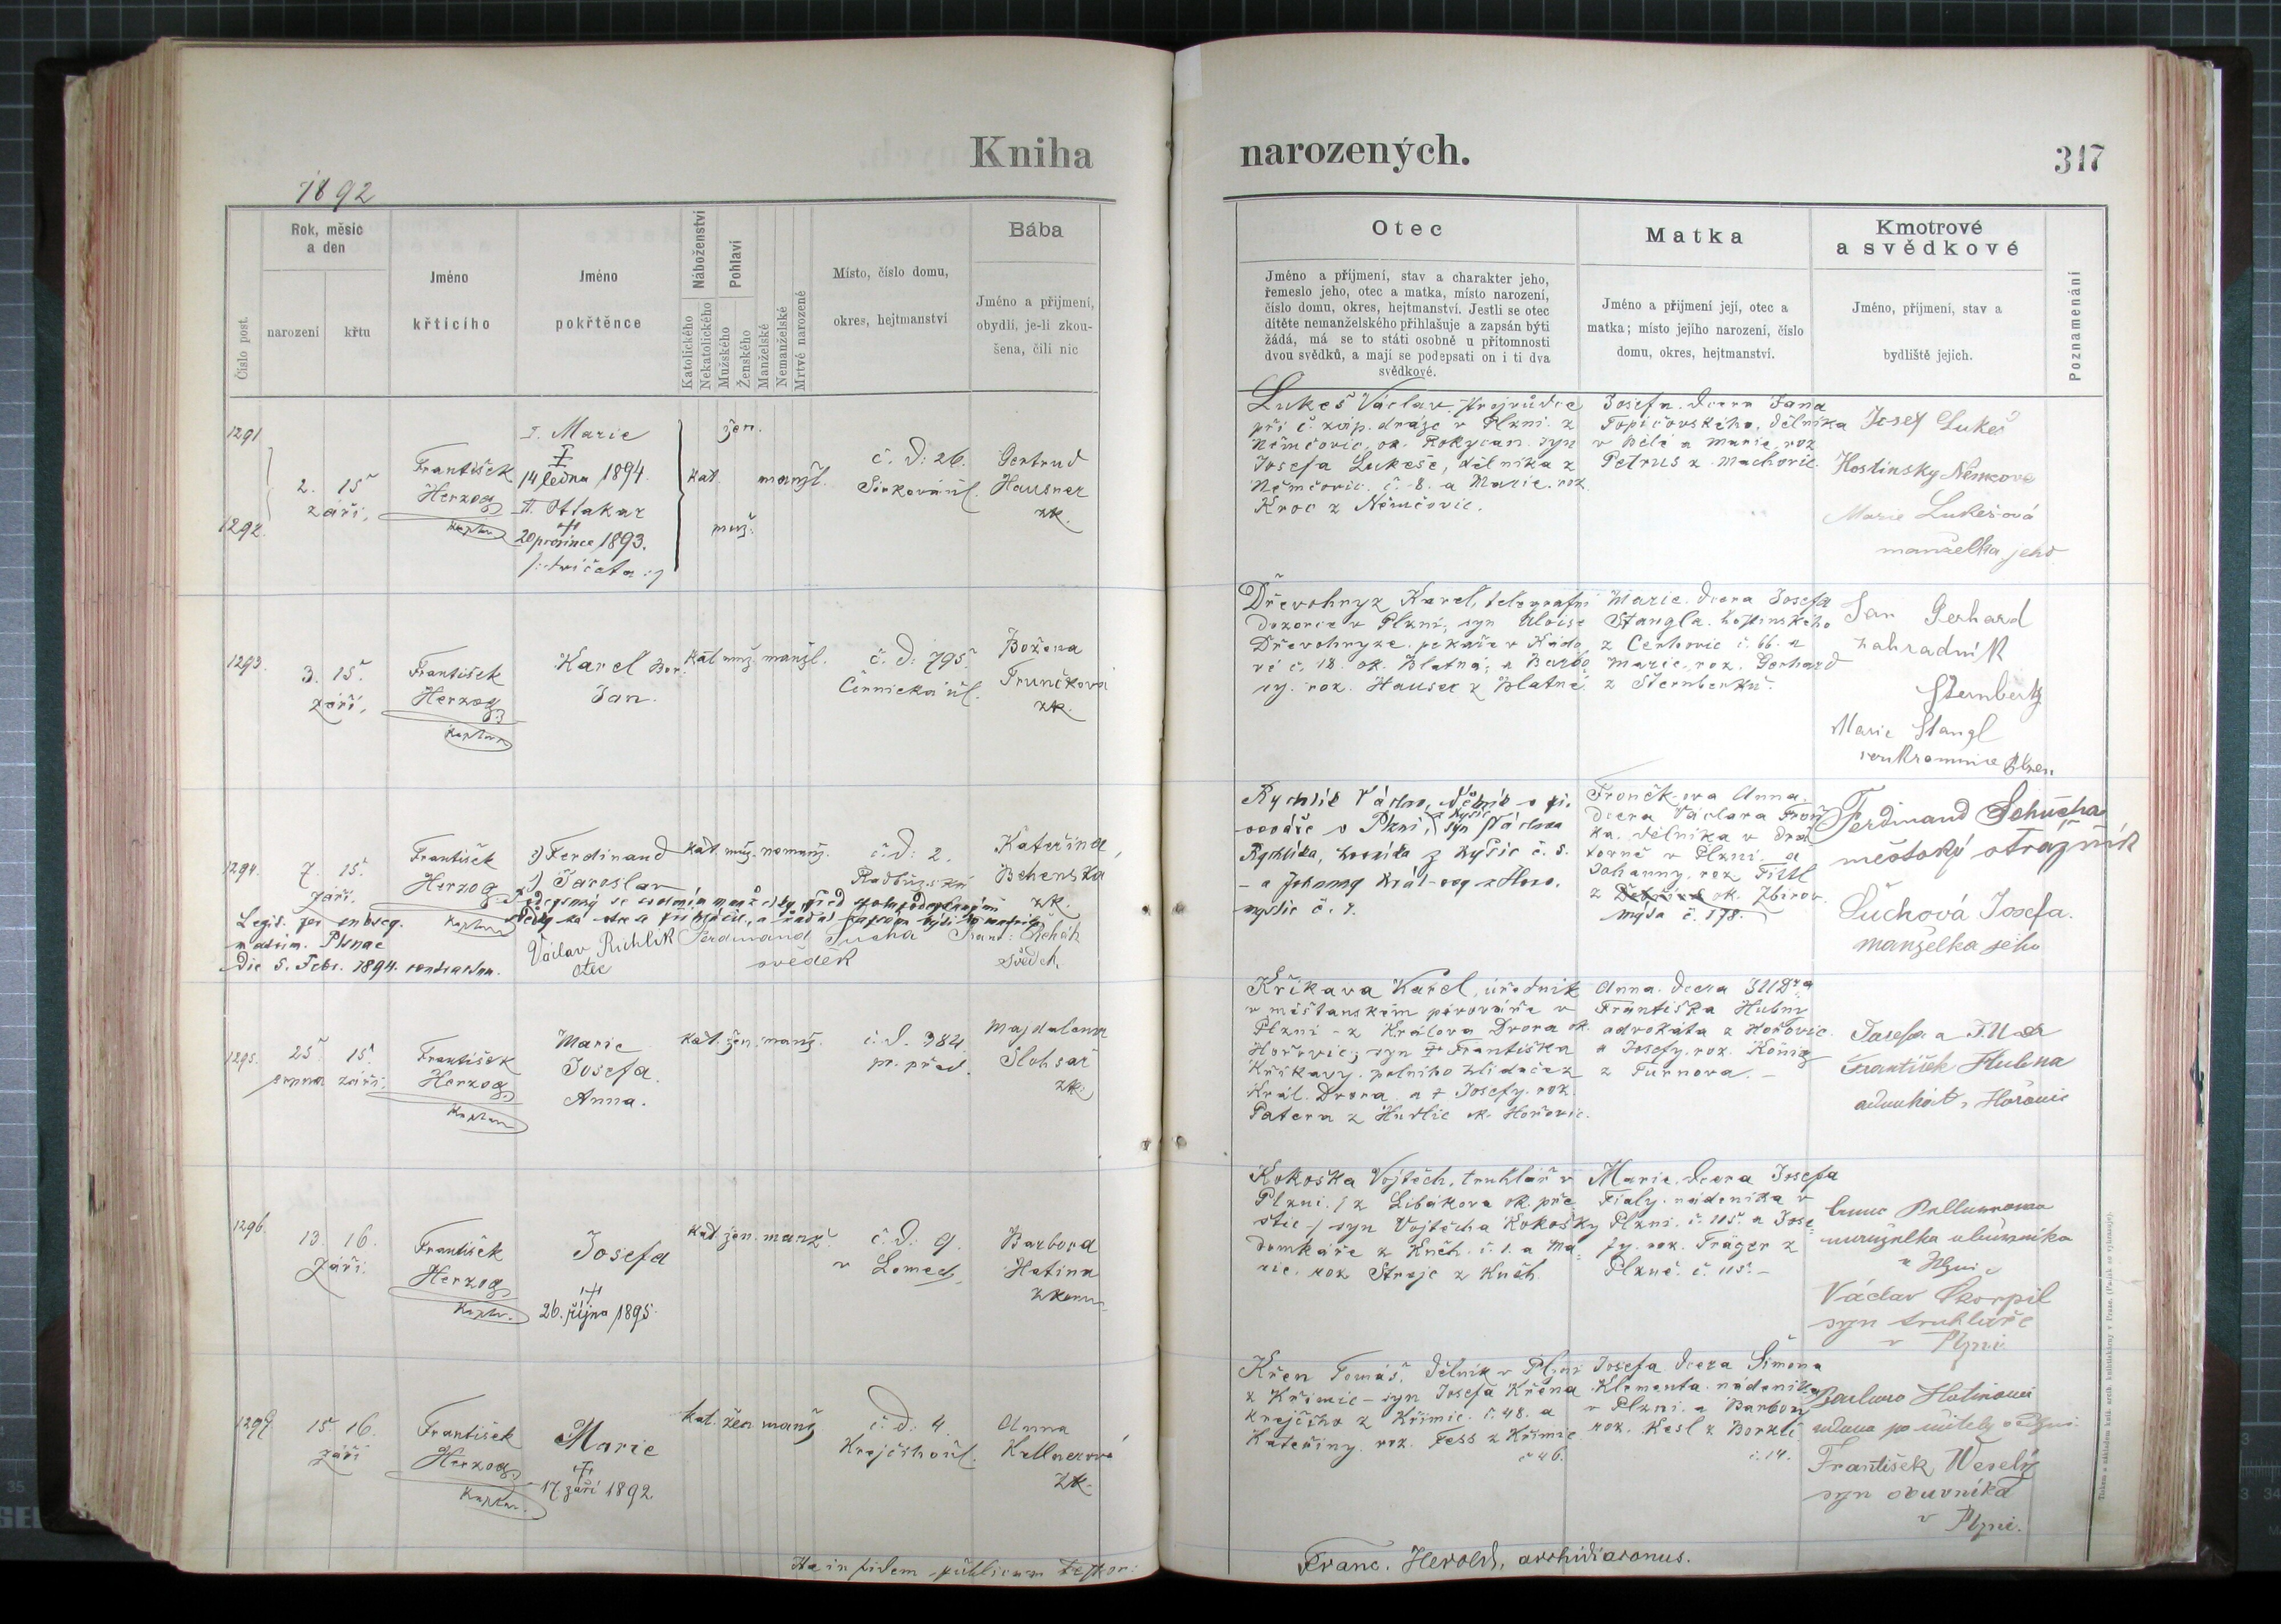 Kniha
1892
Číslo post.
Rok, měsíc
a den
narození
křtu
Jméno
křticího
Jméno
pokřtěnce
Náboženství
Katolického
Nekatolického
Pohlaví
Mužského
Ženského
Manželské
Nemanželské
Mrtvě narozené
Místo, číslo domu,
okres, hejtmanství
Bába
Jméno a příjmení,
obydlí, je-li zkou-
šena, čili nic
1291
1292.
2. 15
září,
František
Herzog
I. Marie
14 ledna 1894.
II. Ottakar
20 prosince 1893.
žen.
kat. manžl.
muž.
č. d: 26.
Gertrud
Hausner
zk.
1293.
3. 15.
září,
František
Herzog
Karel Bor.
Jan.
kat. muž. manžl.
č. d: 795.
Černická úl.
Božena
Trunčková
zk.
1294.
7. 15.
září.
František
Herzog
Ferdinand
Jaroslav
kat. muž. nemanž.
č. d: 2.
Kateřina
Behenská
zk.
Legit. per subseq.
matrim. Plsnae
die 5. Febr. 1894. contractum.
Václav Richlik
otec
Ferdinand Sucha
svědek
Frant. Řehák
svědek
1295.
25. 15.
srpna září.
František
Herzog
Marie
Josefa.
Anna.
kat. žen. manž.
č. d. 384
pr. před.
Magdalena
Slohsar
zk.
1296.
13. 16.
září.
František
Herzog
Josefa
26. října 1895.
kat. žen. manž.
č. d: 9.
v Lomech
Barbora
Hatina
1297.
15. 16.
září
František
Herzog
Marie
17 září 1892
kat. žen. manž
č. d: 4
Krejčího úl.
Anna
Kellnerová
zk.
fidem publicam
narozených.
317
Otec
Jméno a příjmení, stav a charakter jeho,
řemeslo jeho, otec a matka, místo narození,
číslo domu, okres, hejtmanství. Jestli se otec
dítěte nemanželského přihlašuje a zapsán býti
žádá, má se to státi osobně u přítomnosti
dvou svědků, a mají se podepsati on i ti dva
svědkové.
Matka
Jméno a příjmení její, otec a
matka; místo jejího narození, číslo
domu, okres, hejtmanství.
Kmotrové
a svědkové
Jméno, příjmení, stav a
bydliště jejich.
Poznamenání
Lukeš Václav,
při č. záp. dráze v Plzni. z
Němčovic, ok. Rokycan. syn
Josefa Lukeše, dělníka z
Němčovic. č. 8. a Marie. roz.
Kroc z Němčovic.
Josefa. dcera Jana
Topičovského, dělníka
v Bělé a Marie, roz
Petrus z Machovic.
Josef Lukeš
Marie Lukešová
manželka jeho
Dřevohryz Karel, telegrafní
dozorce v Plzni, syn Aloise
Dřevohryze, pekaře v Kado
vě č. 18. ok. Blatná; a Barbo
ry. roz. Hauser z Blatné.
Marie. dcera Josefa
Stangla. hostinského
z Cerhovic č. 66. a
Marie. roz. Gerhard
z Šternberku.
Jan Gerhard
zahradník
Sternberk
Marie Stangl
soukromnice Plzeň.
Rychlík Václav, dělník v pi-
vováře v Plzni, syn Václava
Rychlíka, z Kyšic č. 5.
č. 9.
Frončkova Anna.
dcera Václava Fron
ka. dělníka v
v Plzni. a
Johanny. roz. Fittl
z ok. Zbirov.
Mýta č. 178.
Ferdinand Schucha
městský strážník
Suchová Josefa.
manželka jeho
Křikava Karel, úředník
v měšťanském pivováře v
Plzni - z Králova Dvora ok.
Hořovic; syn Františka
Křikavy. polního hlídače z
Král. Dvora a Josefy. roz.
Patera z Hudlic ok. Hořovic.
Anna. dcera JUDra
Františka Hubny
advokáta z Hořovic.
a Josefy. roz. König
z Turnova.
Josefa a JUDr
František Hubna
advokát, Hořovic
Kokoška Vojtěch, truhlář v
Plzni. z Libákova ok. pře
štic - syn Vojtěcha Kokošky
domkáře z Kněh. č. 1. a Ma
rie. roz Streje z Kněh.
Marie. dcera Josefa
Fialy. nádeníka v
Plzni. č. 115. a Jose
fy. roz. Träger z
Plzně. č. 115.
Václav Skorpil
syn truhláře
v Plzni
Křen Tomáš. dělník v Plzni
z Křimic - syn Josefa Křena
krejčího z Křimic. č. 48. a
Kateřiny. roz. Fess z Křimic
č 46.
Josefa dcera Šimona
Klementa. nádeníka
v Plzni. a Barbory
roz. Kesl z
č. 14.
František Weselý
syn obuvníka
v Plzni.
Franc. Herold, archidiaconus.